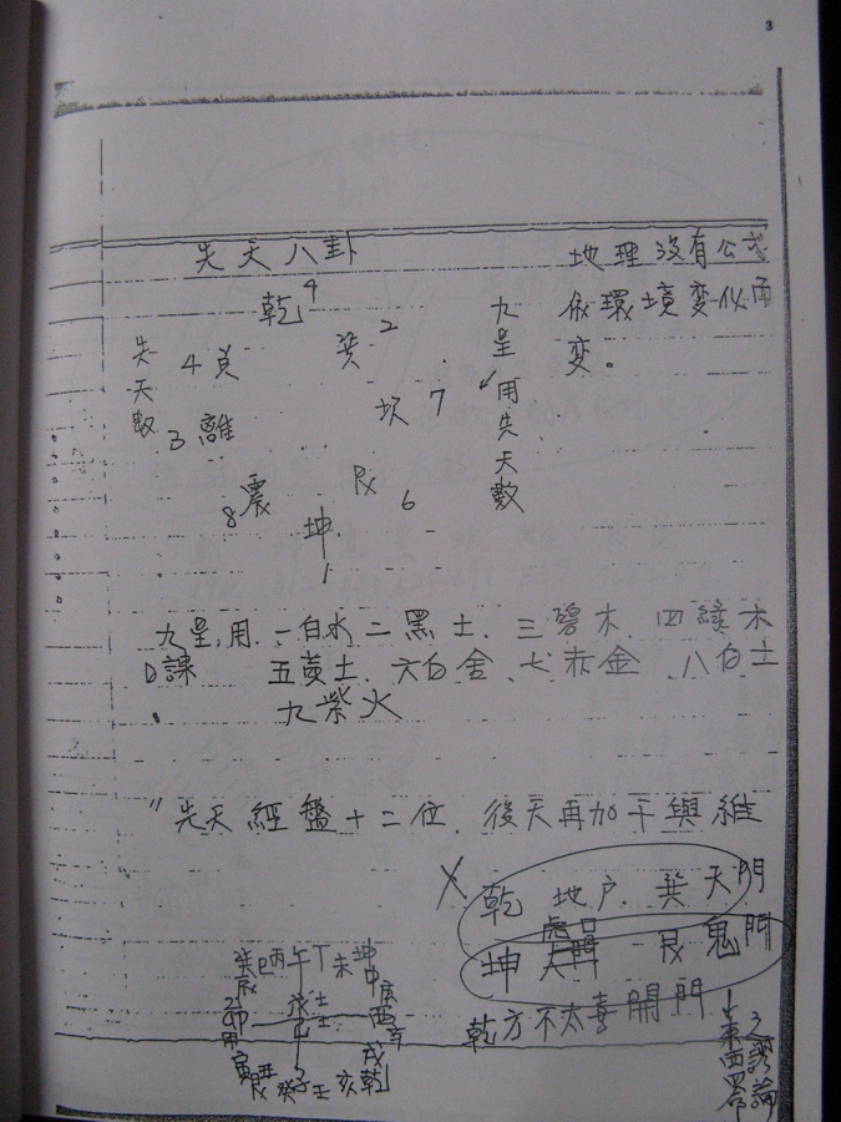 3
先天八卦
地理沒有公式
依環境变化而
变。
乾9
巽2
先天數
4兑
坎7
九星
用先天數
3離
艮6
8震
坤
1
九星,用.一白水二黑土.三碧木.四綠木
五黃土.六白金、七赤金.八白土
九紫火
"先天經盤十二位.後天再加干與維
X 乾 地户.巽天門
坤 艮鬼門
乾方不太喜開門
巽巳丙午丁未坤
辰 戊土 申庚
乙卯 己土 酉辛
甲 戌
寅艮丑癸子壬亥乾
東西四命
之謬論